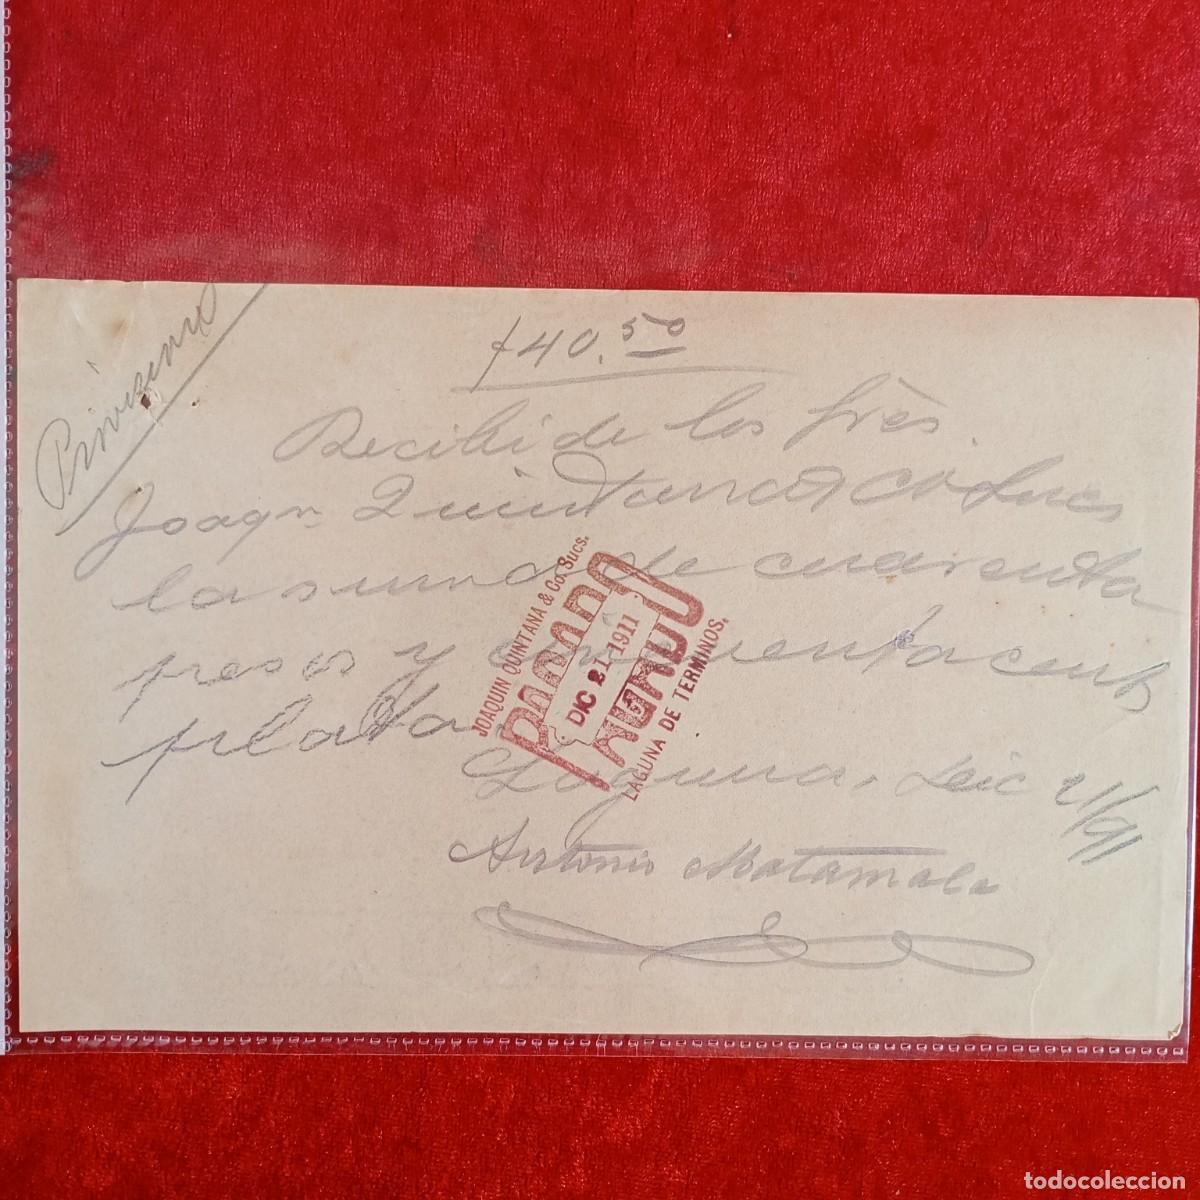 $40.50
Recibi de los Sres.
Joaqn. Quintana & Co Sucs
la suma de cuarenta
pesos y cincuenta cents
plata
Laguna, Dic 21/911
Antonio Matamala
JOAQUIN QUINTANA & Co. Sucs.
PAGADO
DIC 21 1911
LAGUNA DE TERMINOS.
todocoleccion